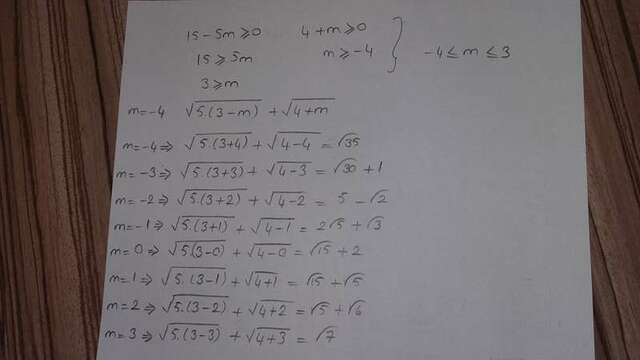 15 - 5m ≥ 0    4 + m ≥ 0
15 ≥ 5m    m ≥ -4 } -4 ≤ m ≤ 3
3 ≥ m
m = -4    √5(3-m) + √4+m
m = -4 ⇒ √5(3+4) + √4-4 = √35
m = -3 ⇒ √5(3+3) + √4-3 = √30 + 1
m = -2 ⇒ √5(3+2) + √4-2 = 5 - √2
m = -1 ⇒ √5(3+1) + √4-1 = 2√5 + √3
m = 0 ⇒ √5(3-0) + √4-0 = √15 + 2
m = 1 ⇒ √5(3-1) + √4+1 = √15 + √5
m = 2 ⇒ √5(3-2) + √4+2 = √5 + √6
m = 3 ⇒ √5(3-3) + √4+3 = √7